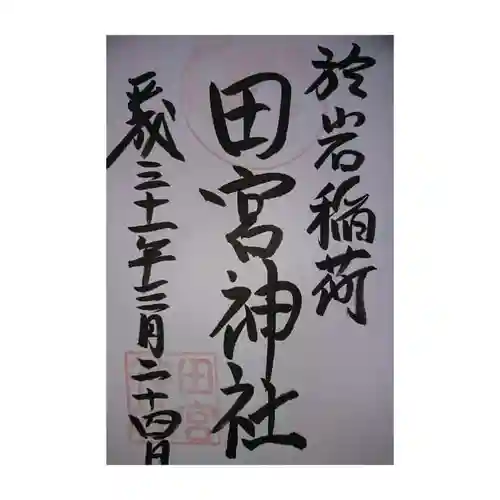 於岩稲荷
田宮神社
平成三十一年三月二十四日
田宮